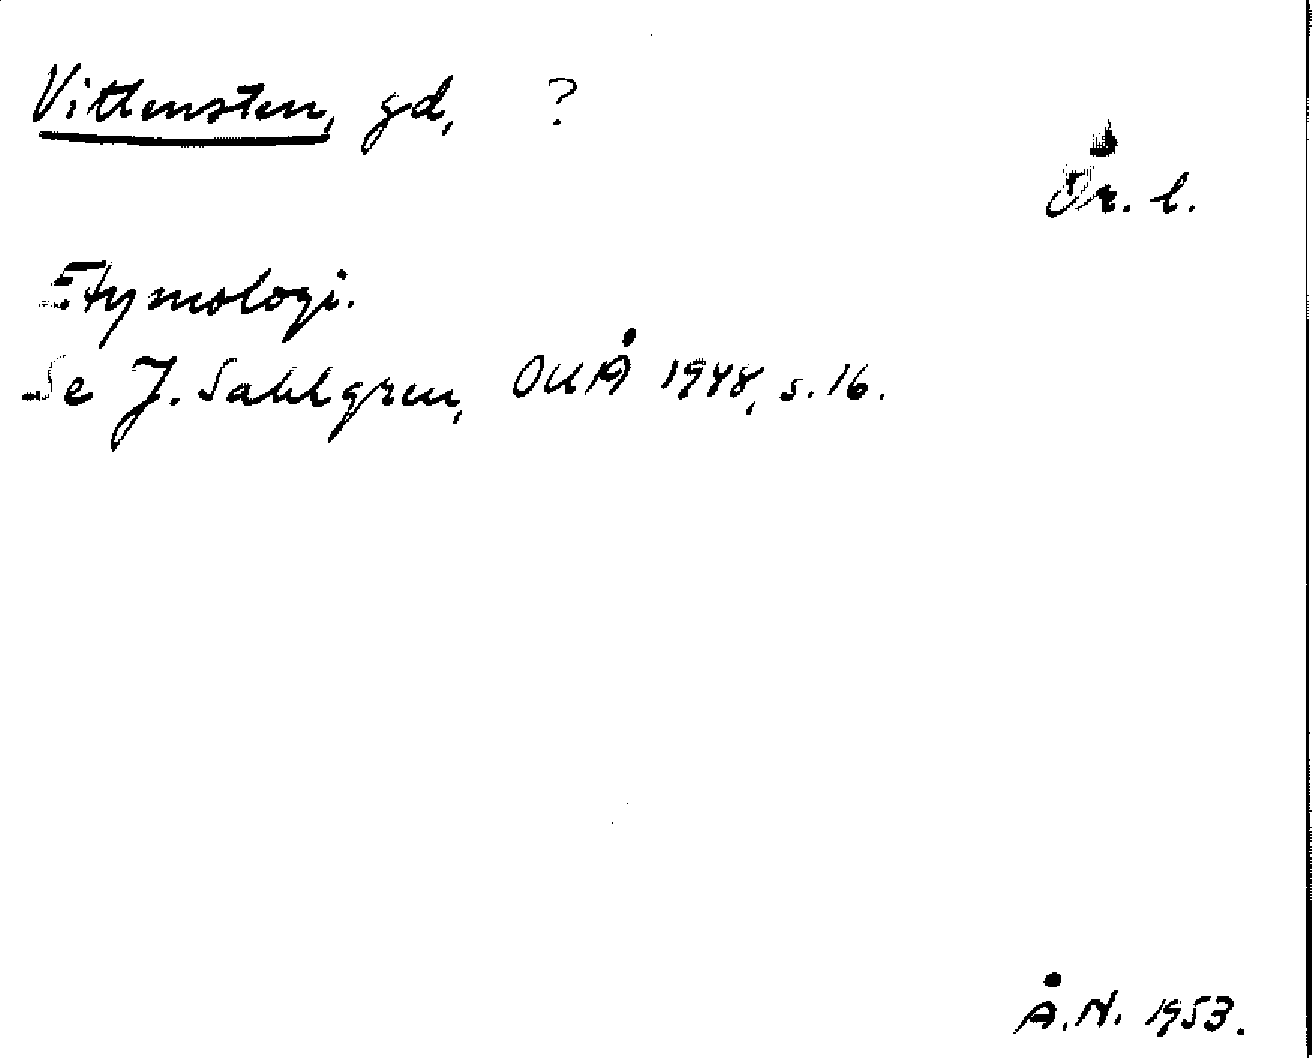 Vittensten, gd, ?
Ör. l.
Etymologi.
Se J. Sahlgren, OUÅ 1948, s. 16.
Å.N. 1953.